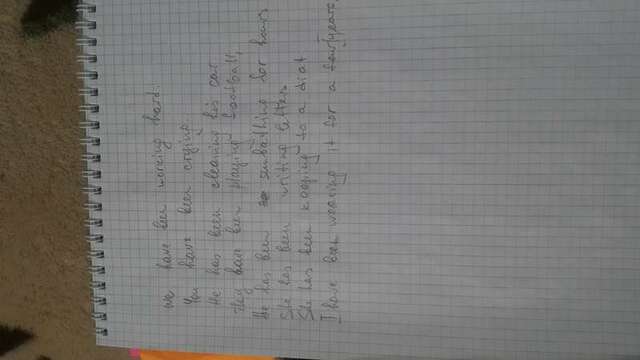 We have been working hard
You have been crying
He has been cleaning his car
They have been playing football,
He has been sunbathing for hours
She has been writing letters
She has been keeping to a diat
I have been wearing it for a few years,